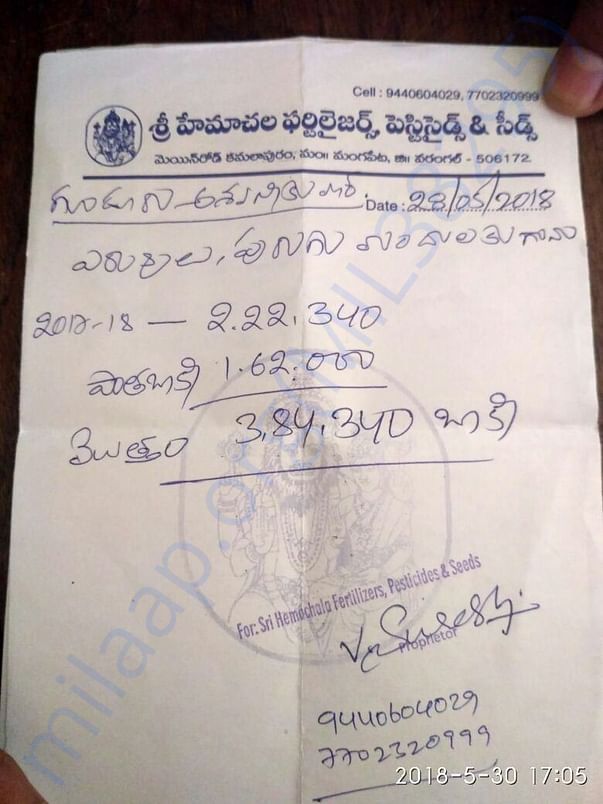 Cell : 9440604029, 7702320999
శ్రీ హేమాచల ఫర్టిలైజర్స్, పెస్టిసైడ్స్ & సీడ్స్
మెయిన్‌రోడ్ కమలాపురం, మం॥ మంగపేట, జి॥ వరంగల్ - 506172.
Date : 28/05/2018
ఎరువులు, పురుగు మందులకు గాను
2017-18 — 2.22.340
పాతబాకీ 1.62.000
మొత్తం 3.84.340 బాకీ
For: Sri Hemachala Fertilizers, Pesticides & Seeds
V. Suresh.
Proprietor
9440604029
7702320999
2018-5-30 17:05